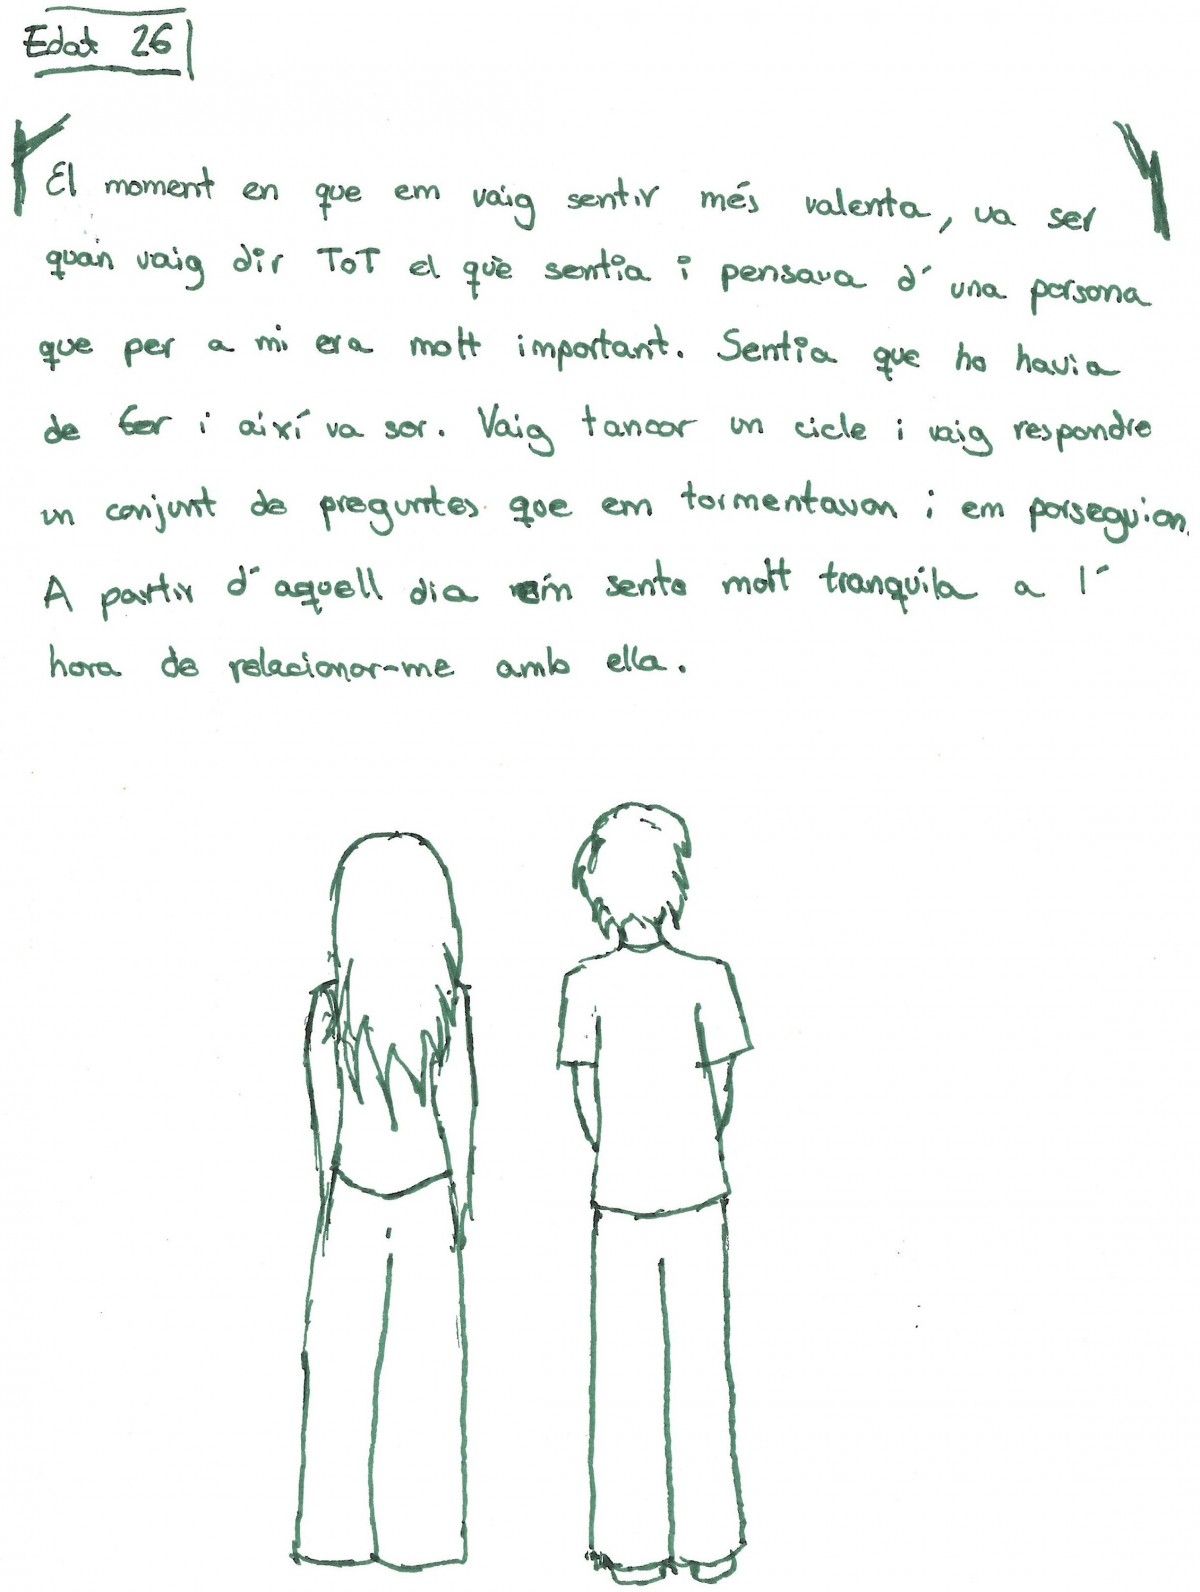 Edat 26
El moment en que em vaig sentir més valenta, va ser
quan vaig dir ToT el què sentia i pensava d'una persona
que per a mi era molt important. Sentia que ho havia
de fer i així va ser. Vaig tancar un cicle i vaig respondre
un conjunt de preguntes que em tormentavan i em perseguian.
A partir d'aquell dia em sento molt tranquila a l'
hora de relacionar-me amb ella.